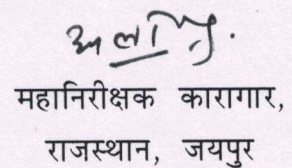 महानिरीक्षक कारागार,
राजस्थान, जयपुर